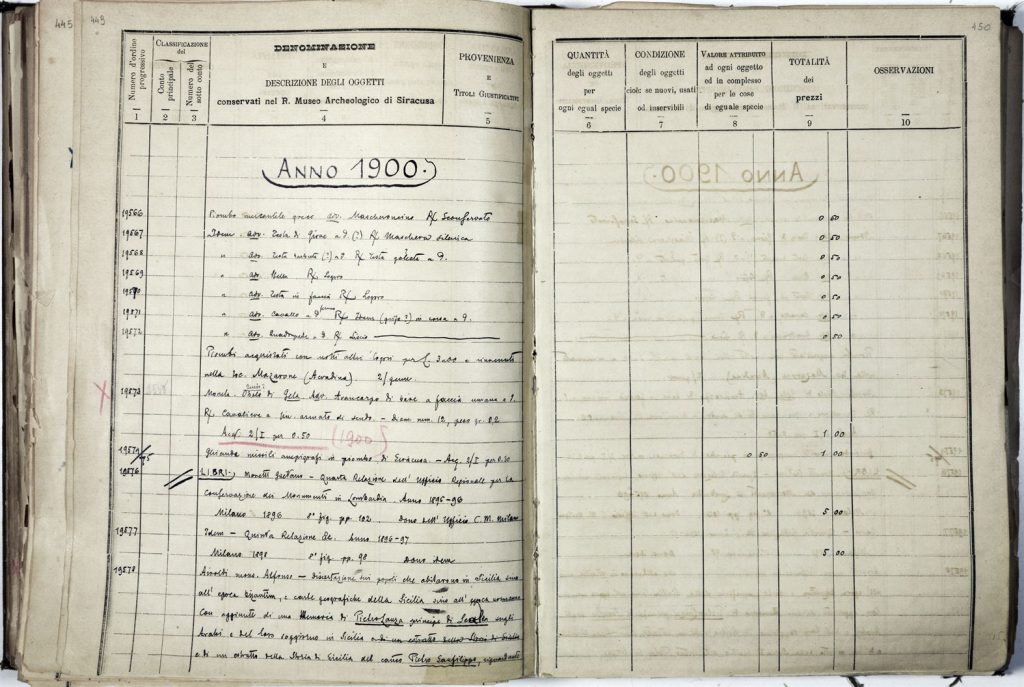 445 449
Numero d'ordine progressivo
CLASSIFICAZIONE
del
Conto principale
Numero del sotto conto
DENOMINAZIONE
E
DESCRIZIONE DEGLI OGGETTI
conservati nel R. Museo Archeologico di Siracusa
PROVENIENZA
E
TITOLI GIUSTIFICATIVI
1 2 3 4 5
ANNO 1900.
19566 Piombo mercantile greco adv. Mascheroncino R/ Sconservato
19567 Idem. adv. Testa di Giove a d (?) R/ Maschera silenica
19568 " adv. Testa (?) a R/ Testa galeata a d.
19569 " adv. Stella R/ Logoro
19570 " adv. Testa in faccia R/ Logoro
19571 " adv. Cavallo a d R/ Idem (?) in corsa a d.
19572 " adv. Quadrupede a d R/ Liscio
Piombi acquistati con molti altri logori per £. 3.00 e rinvenuti
nella loc. Mazzarone (Acradina).
19573 di Gela Adv. Avancorpo di bove a faccia umana a
R/ Cavaliere a armato di scudo. - num. 12, peso gr. 8,2
Acq. 2/I per 0.50 (1900)
19574 75 Ghiande missili anepigrafi in piombo di Siracusa. - Acq. 2/I per 0.50
19576 LIBRI. Moretti Gaetano - Quarta Relazione dell' Ufficio Regionale per la
Conservazione dei Monumenti in Lombardia. Anno 1895-96
Milano 1896 8° fig. pp. 102. Dono dell' Ufficio C. M.
19577 Idem - Quinta Relazione &c. Anno 1896-97
Milano 1898 8° fig. pp. 98 Dono idem
19578 Airoldi mons. Alfonso - Dissertazione sui popoli che abitarono in Sicilia sino
all' epoca bizantina, e carte geografiche della Sicilia sino all' epoca normanna
Con aggiunte di una Memoria di Pietro Lanza principe di sugli
Arabi e del loro soggiorno in Sicilia e di un estratto della Storia di Sicilia
e di un estratto della Storia di Sicilia del Pietro Sanfilippo, riguardante
450
QUANTITÀ
degli oggetti
per
ogni egual specie
CONDIZIONE
degli oggetti
cioè: se nuovi, usati
od inservibili
VALORE ATTRIBUITO
ad ogni oggetto
od in complesso
per le cose
di eguale specie
TOTALITÀ
dei
prezzi
OSSERVAZIONI
6 7 8 9 10
0 50
0 50
0 50
0 50
0 50
0 50
0 50
1 00
0 50 1 00
5 00
5 00